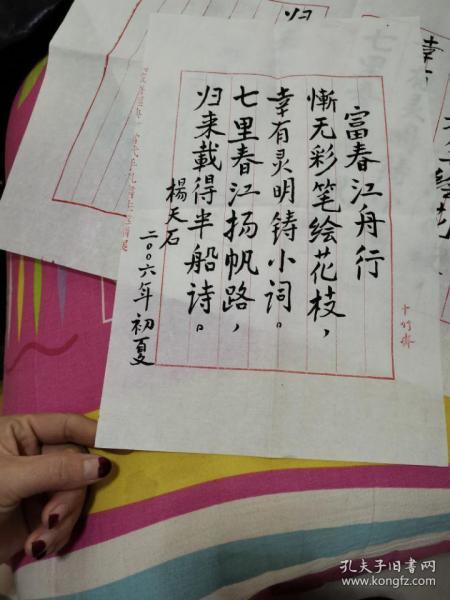 富春江舟行
慚无彩笔绘花枝，
幸有灵明铸小词。
七里春江扬帆路，
归来載得半船诗。
楊天石
二〇〇六年初夏
十竹斋
归
七里
幸
孔夫子旧书网
www.kongfz.com